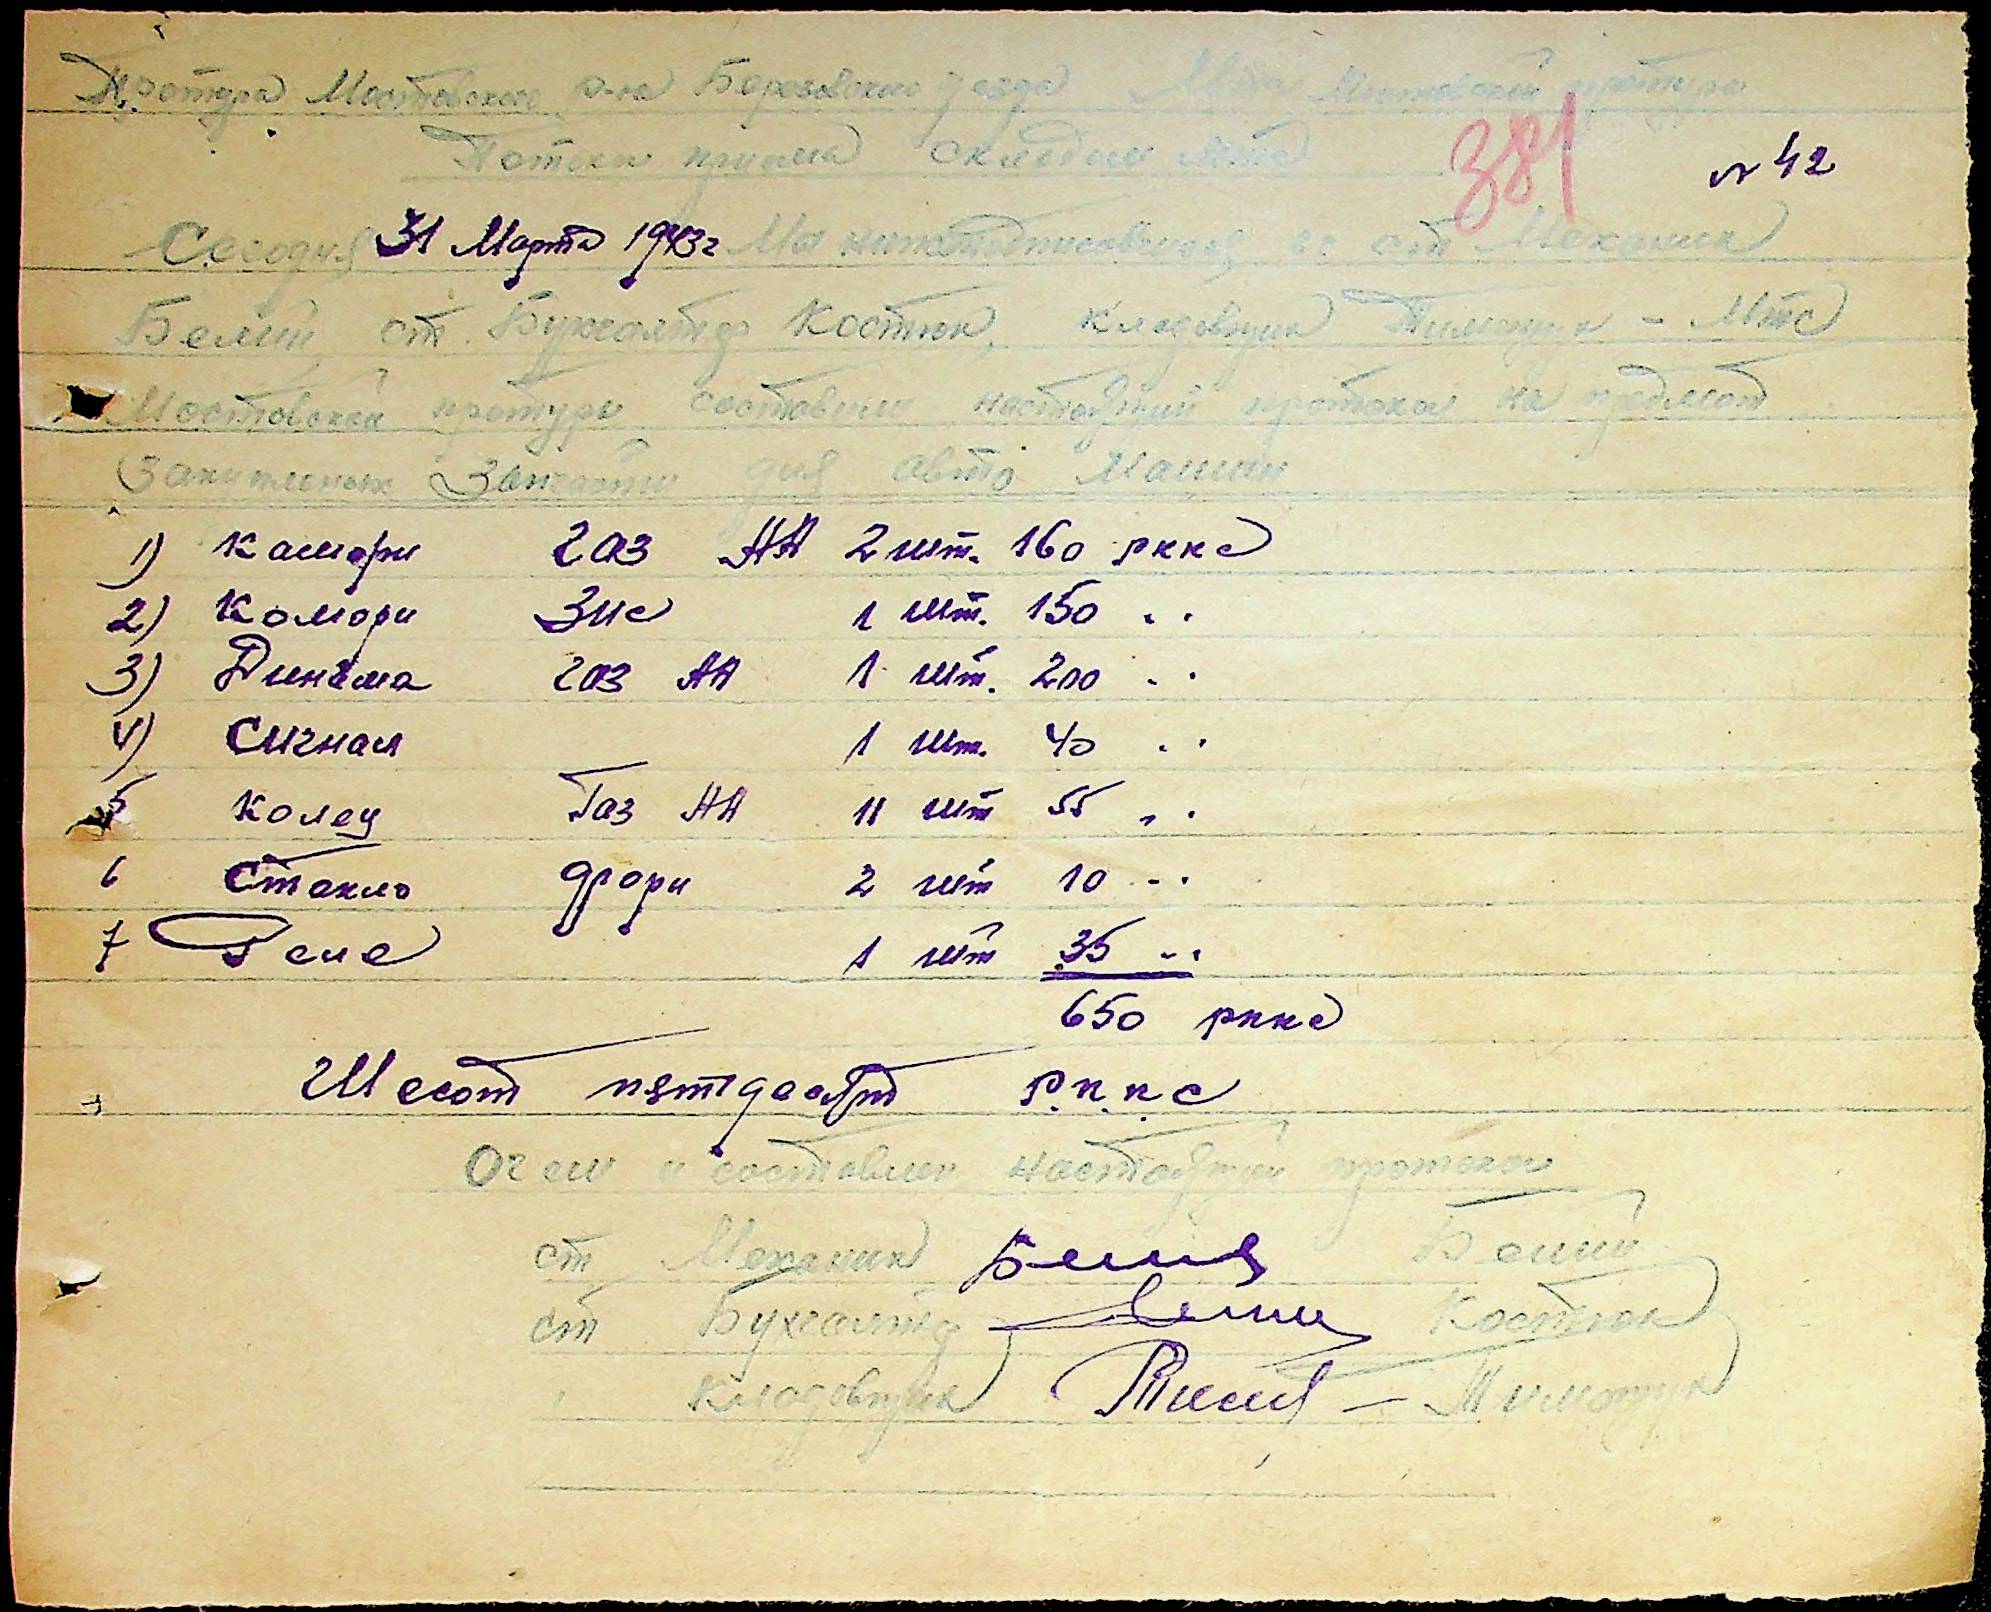 Претура Мостовского р-на Березовского уезда Мтс Мостовской претуры
приема складом мтс
381
N 42
Сегодня 31 Марта 1943г Мы нижеподписавшися ст Механик
Белый ст. Бухгалтер Костюк, кладовщик Тимощук - Мтс
Мостовской претуры составили настоящий протокол на предмет
Запчасти для авто Машин
1) Камери газ АА 2 шт. 160 рккс
2) Камори Зис 1 шт. 150 "
3) Динама газ АА 1 шт. 200 "
4) Сигнал 1 шт. 40 "
5 Колец Газ АА 11 шт 55 "
6 Стекло фари 2 шт 10 "
7 Реле 1 шт 35 "
650 рккс
Шесот пятдесят р.к.к.с
О чем и составлен настоящий протокол
ст Механик Белий
ст Бухгалтер Костюк
" Кладовщик Тимощук